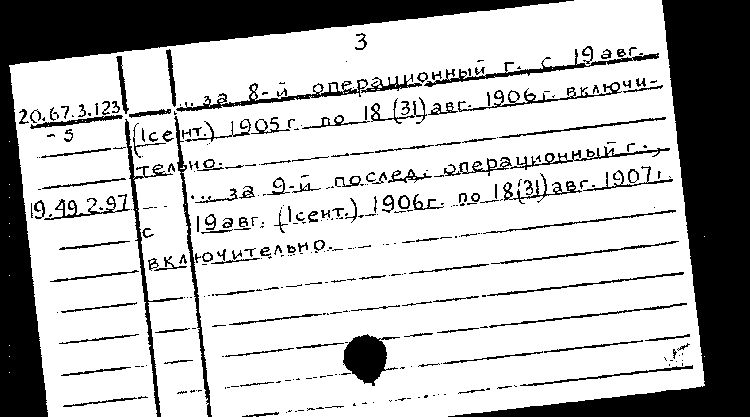 3
20.67.3.123 ... за 8-й операционный г. с 19 авг.
-5 (1сент.) 1905г. по 18 (31) авг. 1906г. включи-
тельно.
19.49.2.97 ... за 9-й послед. операционный г.,
с 19 авг. (1сент.) 1906г. по 18(31) авг. 1907г.
включительно.